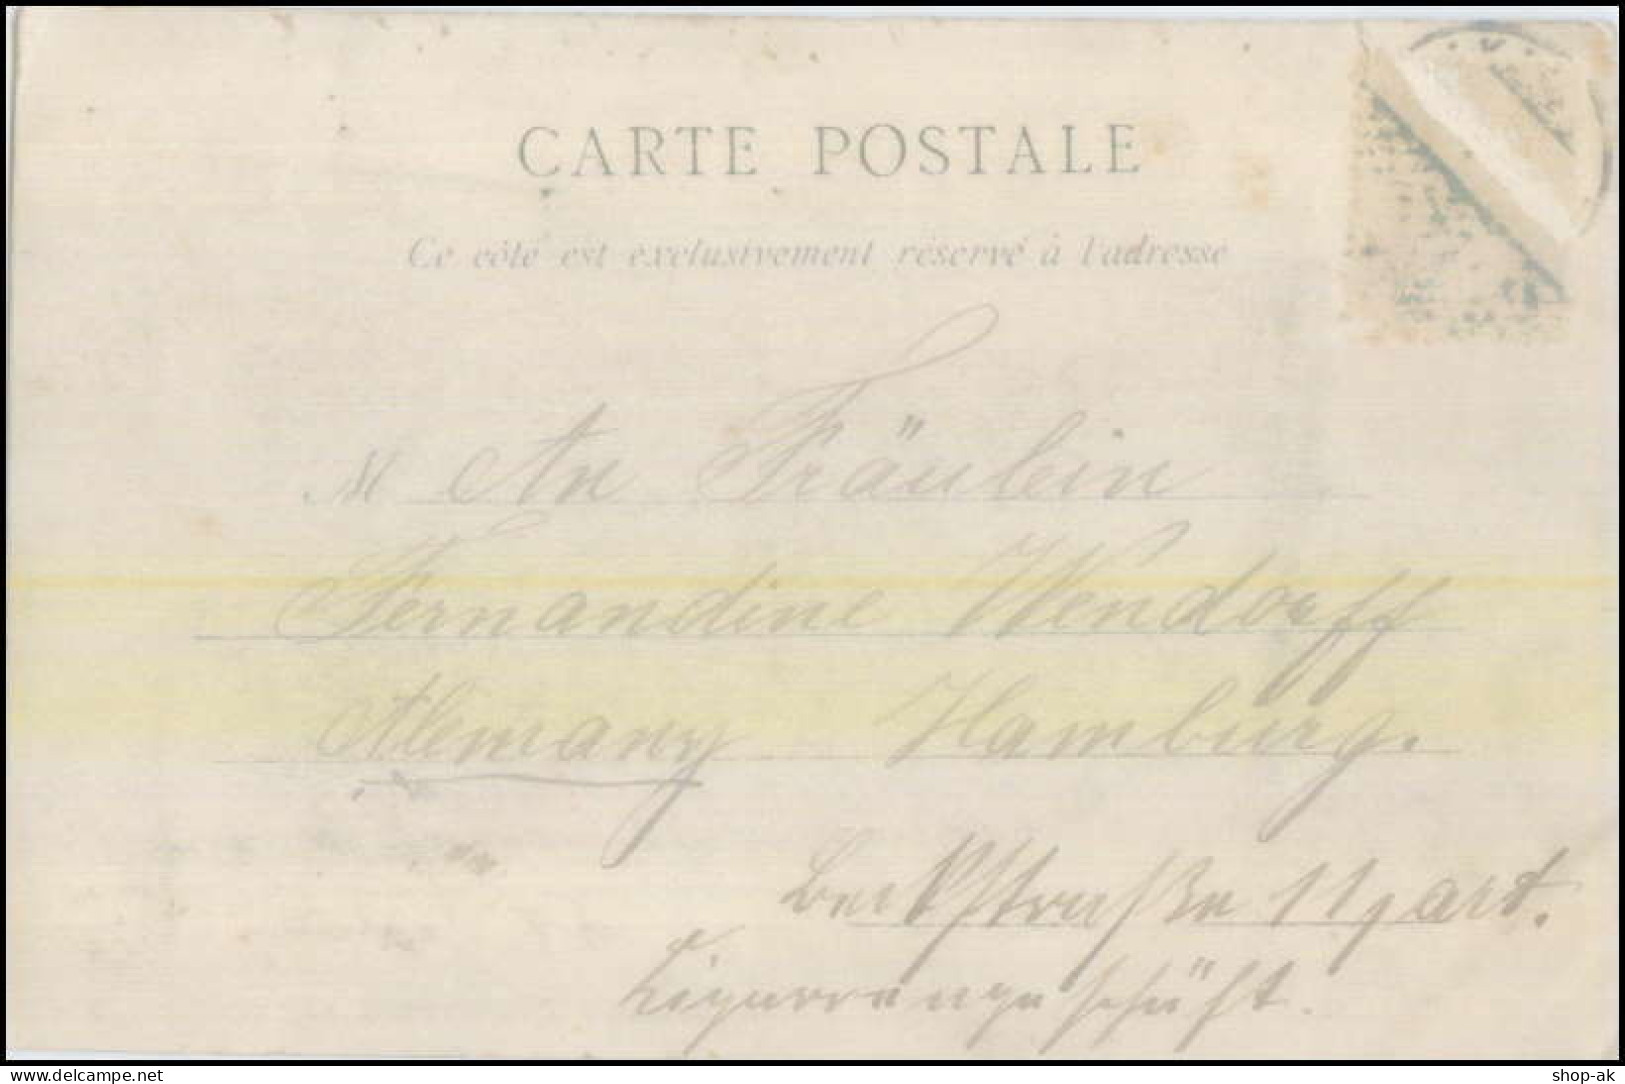 CARTE POSTALE
Ce côté est exclusivement réservé à l'adresse
M An Fräulein
Fernandine Wendorff
Alemany Hamburg.
Beckstraße 11 part.
Zigarrengeschäft.
www.delcampe.net
shop-ak